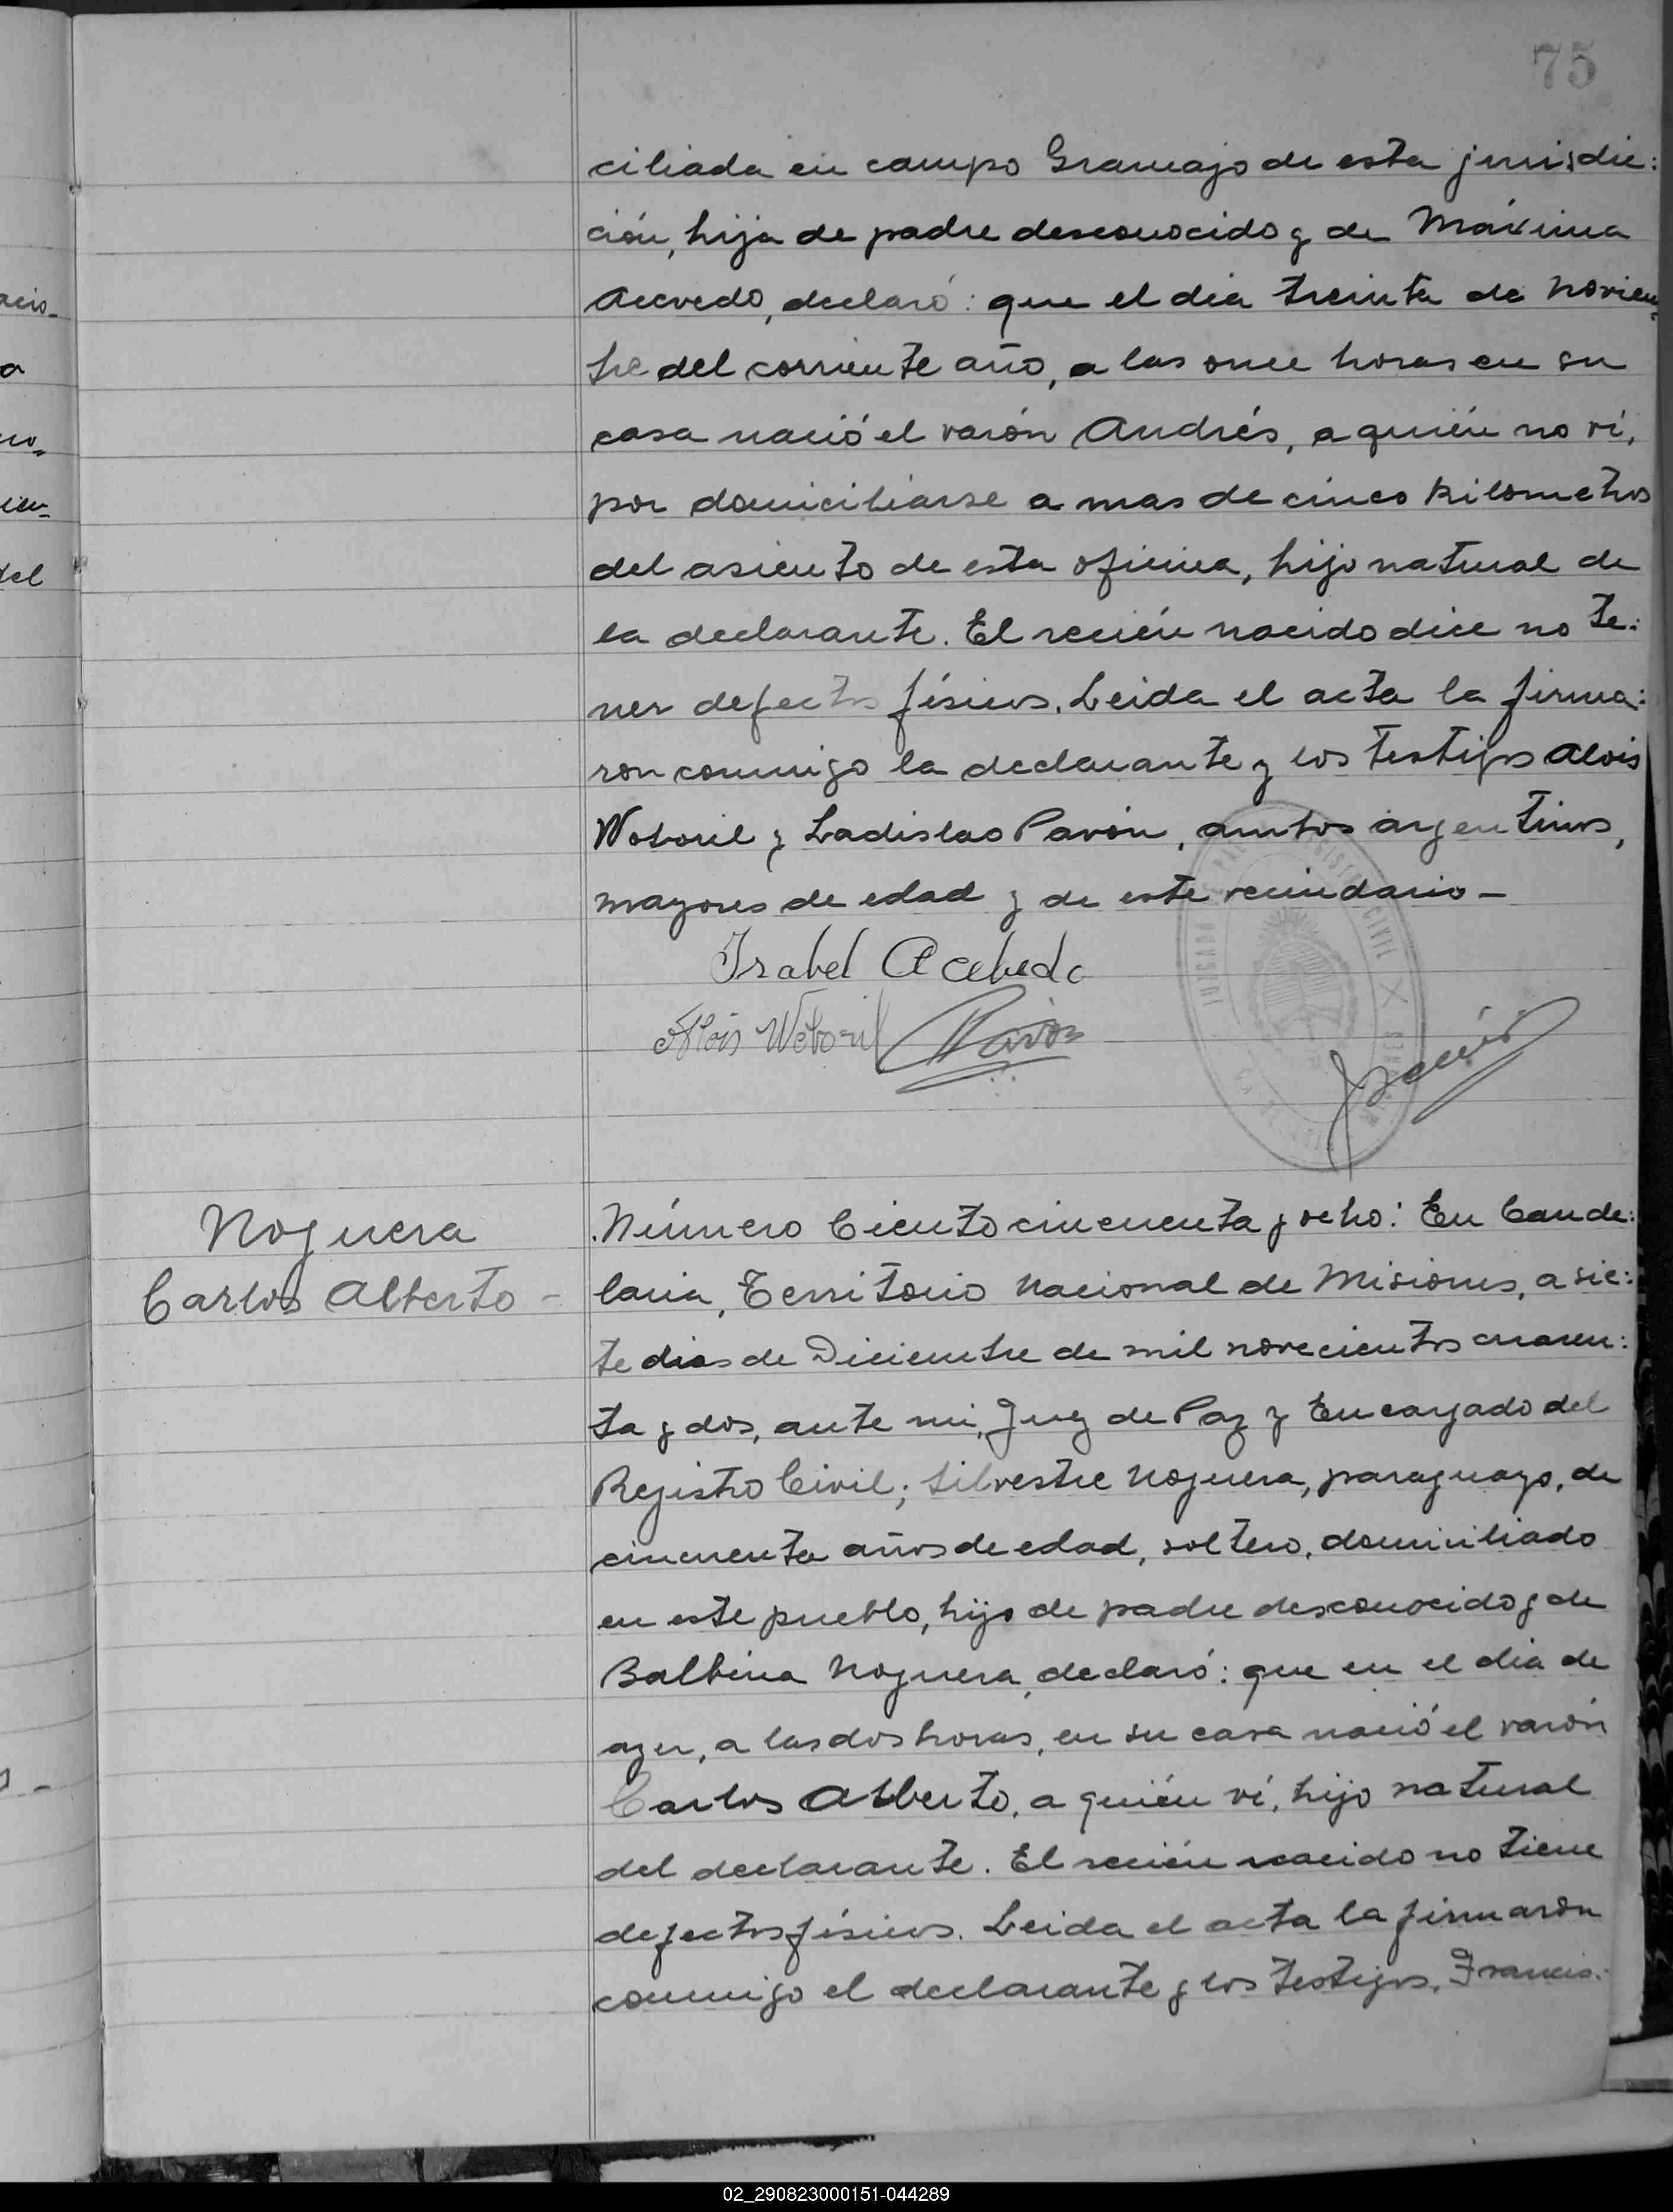 75
ciliada en campo Gramajo de esta jurisdic:
ción, hija de padre desconocido y de Máxima
Acevedo, declaró: que el dia treinta de noviem=
bre del corriente año, a las once horas en su
casa nació el varón Andrés, a quién no ví,
por domiciliarse a mas de cinco kilometros
del asiento de esta oficina, hijo natural de
la declarante. El recién nacido dice no te:
ner defectos físicos. Leida el acta la firma:
ron conmigo la declarante y los testigos Alois
Woboril y Ladislao Pavón, ambos argentinos,
mayores de edad y de este vecindario -
Isabel Acebedo
Alois Woboril Pavon
JUZGADO DE PAZ REGISTRO CIVIL
Noguera
Carlos Alberto -
Número Ciento cincuenta y ocho: En Cande:
laria, Territorio Nacional de Misiones, a sie:
te dias de Diciembre de mil novecientos cuaren:
ta y dos, ante mi, Juez de Paz y Encargado del
Registro Civil; Silvestre Noguera, paraguayo, de
cincuenta años de edad, soltero, domiciliado
en este pueblo, hijo de padre desconocido y de
Balbina Noguera, declaró: que en el dia de
ayer, a las dos horas, en su casa nació el varón
Carlos Alberto, a quién ví, hijo natural
del declarante. El recién nacido no tiene
defectos físicos. Leida el acta la firmarón
conmigo el declarante y los testigos, Francis:
acio-
a
no=
ien=
del
02_290823000151-044289